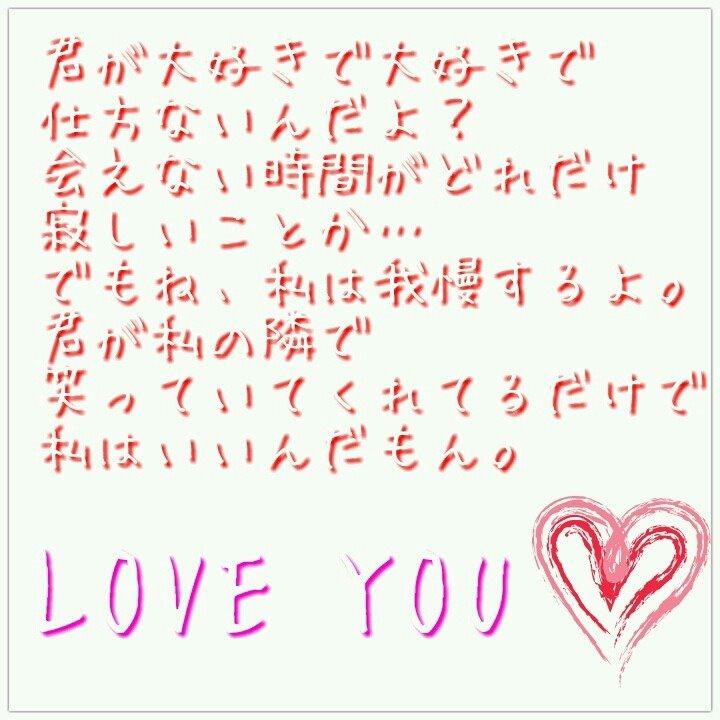 君が大好きで大好きで
仕方ないんだよ？
会えない時間がどれだけ
寂しいことか…
でもね、私は我慢するよ。
君が私の隣で
笑っていてくれてるだけで
私はいいんだもん。
LOVE YOU